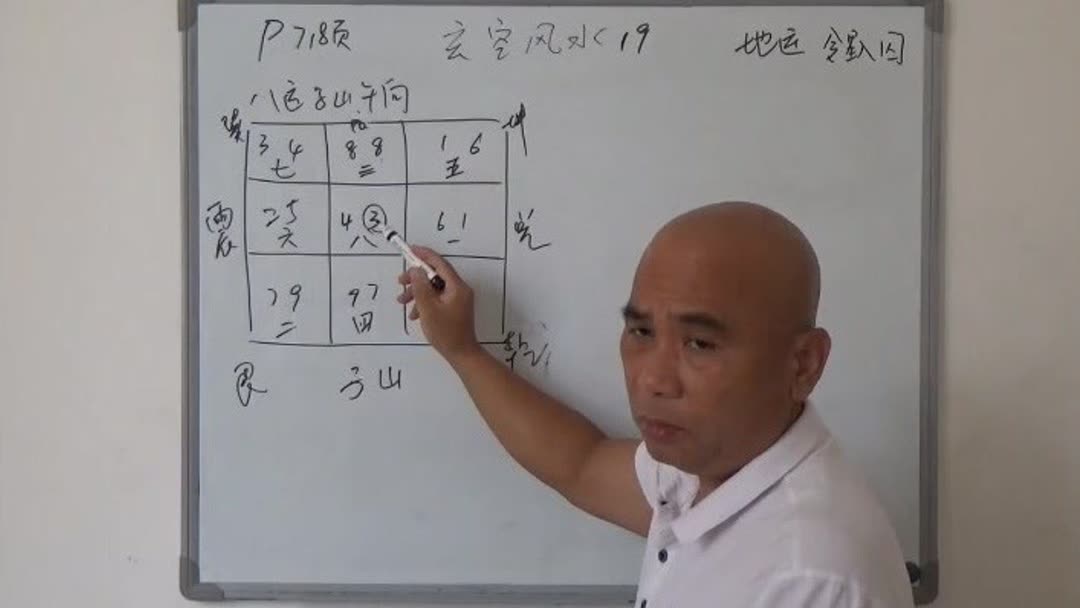 P718页 玄空风水 19 地运 令星入囚
八运子山午向
巽 坤
3 4 8 8 1 6
七 三 五
震 2 5 4 3 6 1 兑
六 八 一
7 9 9 7
二 四
艮 子山 乾